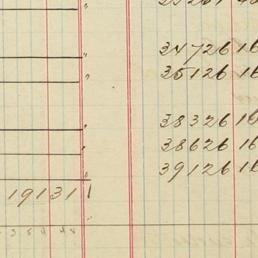 34726 16
35126 16
38326 16
38626 16
39126 16
19131